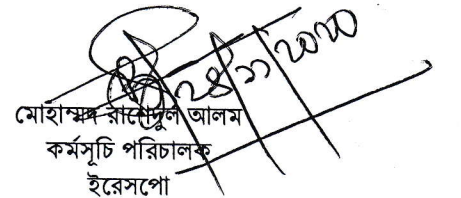 ২৪/১১/২০২০
মোহাম্মদ রাশেদুল আলম
কর্মসূচি পরিচালক
ইরেসপো